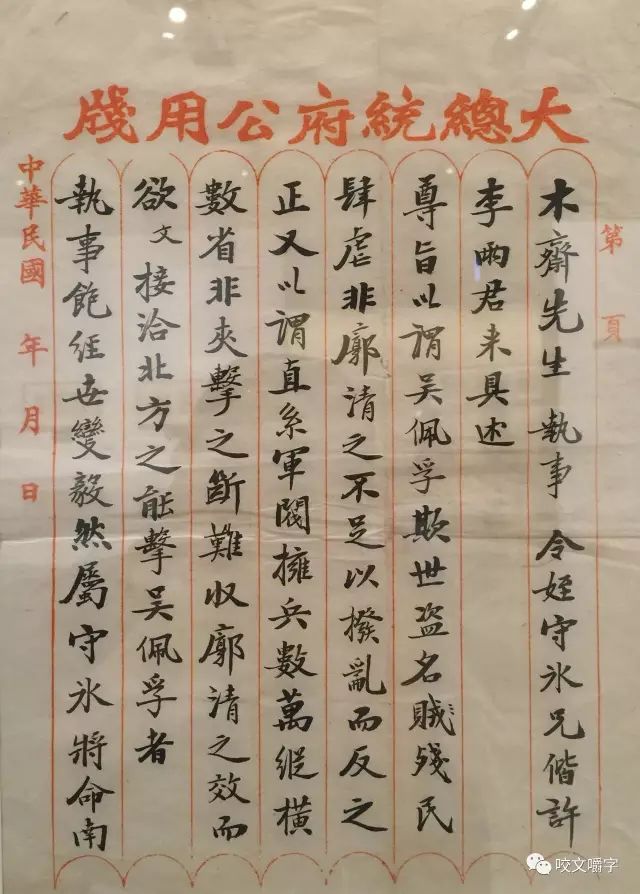 大總統府公用牋
第 頁
木齋先生執事令姪守氷兄偕許
李兩君来具述
尊旨以謂吴佩孚欺世盜名賊殘民
肆虐非廓清之不足以撥亂而反之
正又以謂直系軍閥擁兵數萬縱橫
數省非夾擊之斷難収廓清之效而
欲文接洽北方之能擊吴佩孚者
執事飽經世變毅然屬守氷將命南
中華民國 年 月 日
咬文嚼字